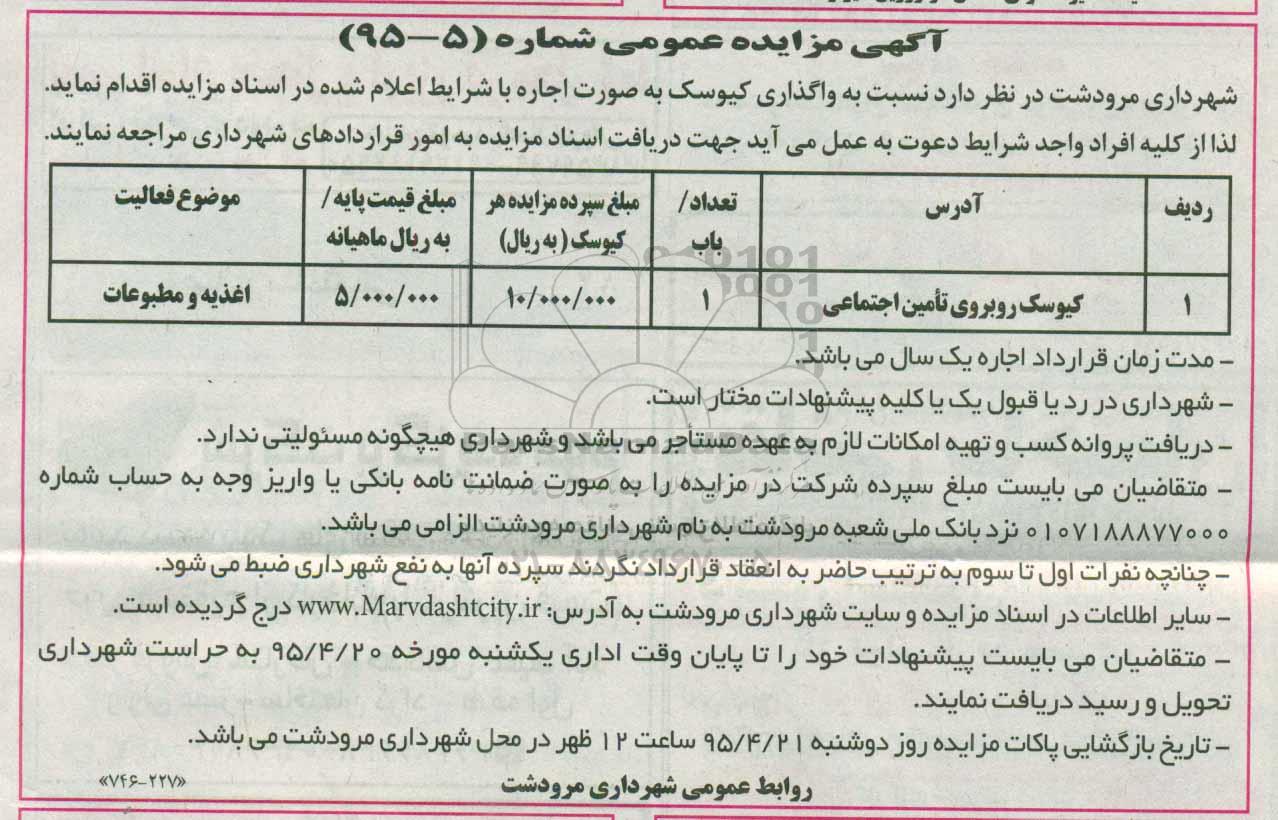 آگهی مزایده عمومی شماره (۵–۹۵)
شهرداری مرودشت در نظر دارد نسبت به واگذاری کیوسک به صورت اجاره با شرایط اعلام شده در اسناد مزایده اقدام نماید.
لذا از کلیه افراد واجد شرایط دعوت به عمل می آید جهت دریافت اسناد مزایده به امور قراردادهای شهرداری مراجعه نمایند.
ردیف آدرس تعداد/ باب مبلغ سپرده مزایده هر کیوسک (به ریال) مبلغ قیمت پایه/ به ریال ماهیانه موضوع فعالیت
۱ کیوسک روبروی تأمین اجتماعی ۱ ۱۰/۰۰۰/۰۰۰ ۵/۰۰۰/۰۰۰ اغذیه و مطبوعات
– مدت زمان قرارداد اجاره یک سال می باشد.
– شهرداری در رد یا قبول یک یا کلیه پیشنهادات مختار است.
– دریافت پروانه کسب و تهیه امکانات لازم به عهده مستأجر می باشد و شهرداری هیچگونه مسئولیتی ندارد.
– متقاضیان می بایست مبلغ سپرده شرکت در مزایده را به صورت ضمانت نامه بانکی یا واریز وجه به حساب شماره
۰۱۰۷۱۸۸۸۷۷۰۰۰ نزد بانک ملی شعبه مرودشت به نام شهرداری مرودشت الزامی می باشد.
– چنانچه نفرات اول تا سوم به ترتیب حاضر به انعقاد قرارداد نگردند سپرده آنها به نفع شهرداری ضبط می شود.
– سایر اطلاعات در اسناد مزایده و سایت شهرداری مرودشت به آدرس: www.Marvdashtcity.ir درج گردیده است.
– متقاضیان می بایست پیشنهادات خود را تا پایان وقت اداری یکشنبه مورخه ۹۵/۴/۲۰ به حراست شهرداری
تحویل و رسید دریافت نمایند.
– تاریخ بازگشایی پاکات مزایده روز دوشنبه ۹۵/۴/۲۱ ساعت ۱۲ ظهر در محل شهرداری مرودشت می باشد.
روابط عمومی شهرداری مرودشت
«۷۴۶-۲۲۷»